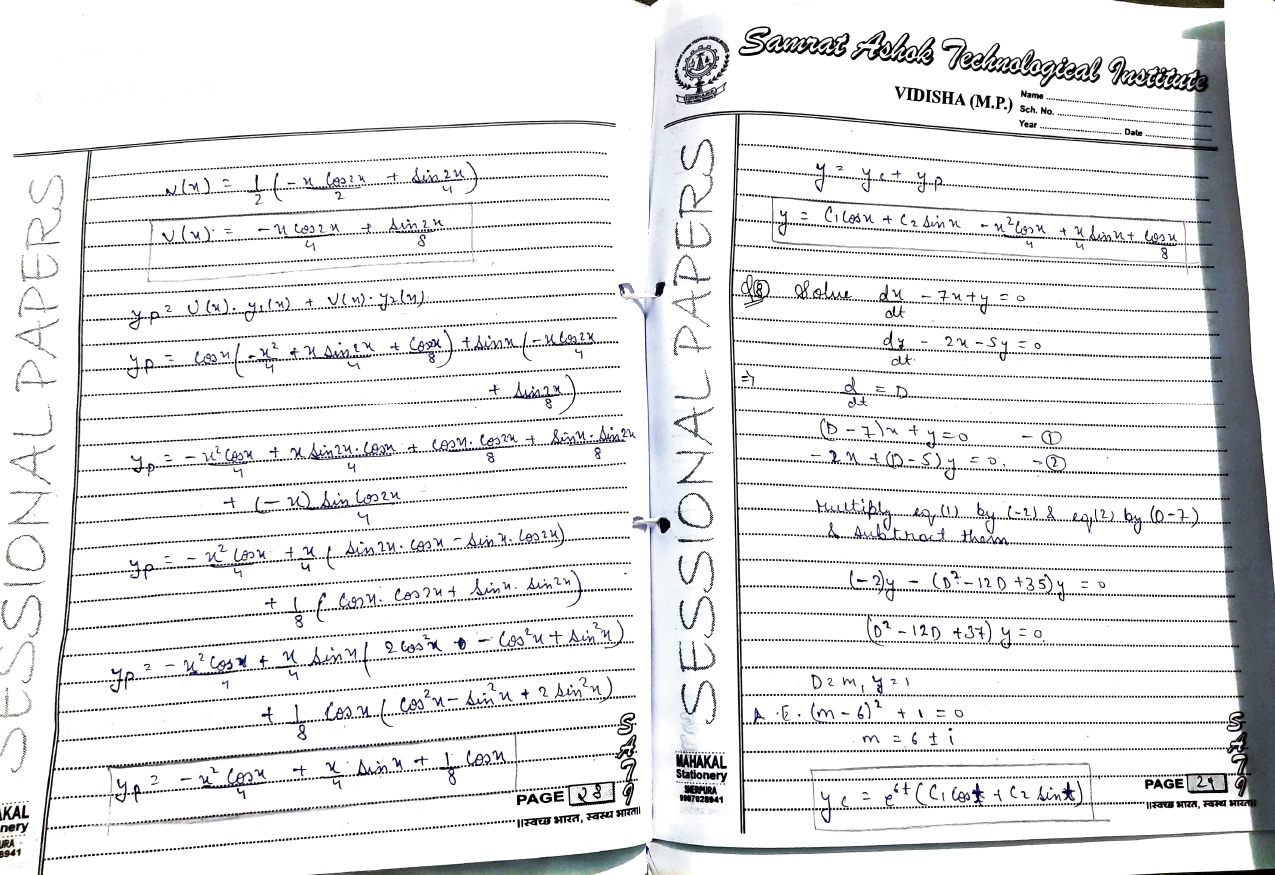 SESSIONAL PAPERS
v(x) = 1/2 (-x cos2x/2 + sin2x/4)
V(x) = -x cos2x/4 + sin2x/8
yp = U(x). y1(x) + V(x). y2(x)
yp = cosx (-x²/4 + x sin2x/4 + cosx/8) + sinx (-x cos2x/4
+ sin2x/8)
yp = -x² cosx/4 + x sin2x. cosx/4 + cosx. cos2x/8 + sinx. sin2x/8
+ (-x) sin cos2x/4
yp = -x² cosx/4 + x/4 ( sin2x. cosx - sinx. cos2x)
+ 1/8 ( cosx. cos2x + sinx. sin2x)
yp = -x² cosx/4 + x/4 sinx ( 2cos²x - cos²x + sin²x)
+ 1/8 cosx ( cos²x - sin²x + 2 sin²x)
yp = -x² cosx/4 + x/4 sinx + 1/8 cosx
SATI
PAGE 28
॥स्वच्छ भारत, स्वस्थ भारत॥
AKAL
nery
URA
8941
Samrat Ashok Technological Institute
VIDISHA (M.P.)
Name
Sch. No.
Year Date
SESSIONAL PAPERS
y = yc + yp
y = C1 cosx + C2 sinx - x² cosx/4 + x/4 sinx + cosx/8
Q8 Solve dx/dt - 7x + y = 0
dy/dt - 2x - 5y = 0
⇒ d/dt = D
(D - 7)x + y = 0 - ①
- 2x + (D - 5) y = 0. - ②
Multiply eq (1) by (-2) & eq (2) by (D-7)
& subtract them
(-2)y - (D² - 12D + 35)y = 0
(D² - 12D + 37) y = 0
D = m, y = 1
A.E. (m - 6)² + 1 = 0
m = 6 ± i
yc = e^6t (C1 cost + C2 sint)
MAHAKAL
Stationery
SHERPURA
9907028941
SATI
PAGE 29
॥स्वच्छ भारत, स्वस्थ भारत॥